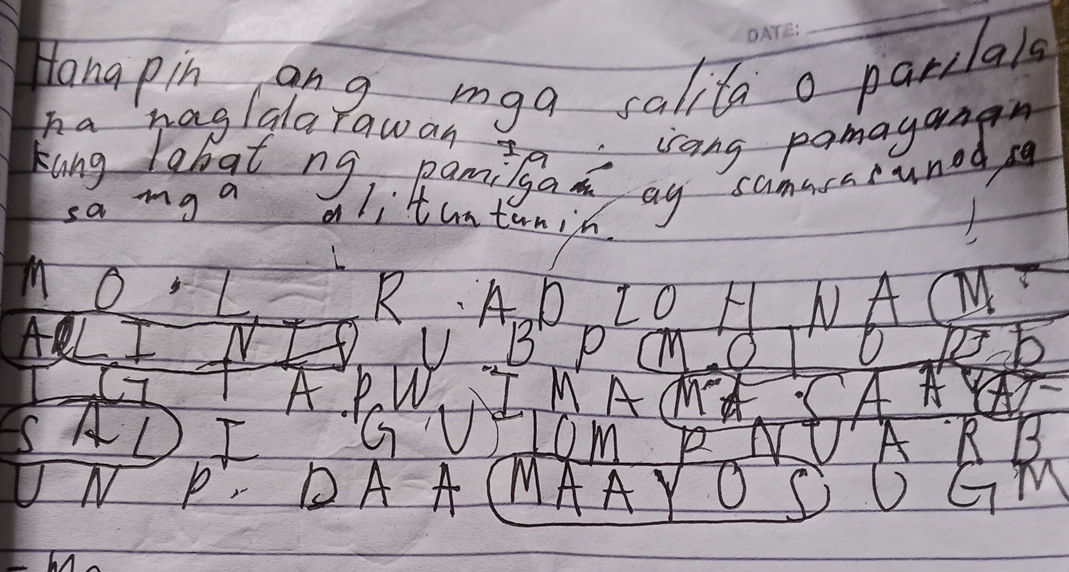 DATE:
Hanapin ang mga salita o parilala
na naglalarawan sa isang pamayanan
kung lahat ng pamilya ay sumusunod sa
sa mga alituntunin.
M O L R A D I O H N A M
A L I N I S U B P M O T O R
I G I T A P W I M A M A S A A Y A
S A L I G U I O M P N U A R B
U N P D A A M A A Y O S U G M